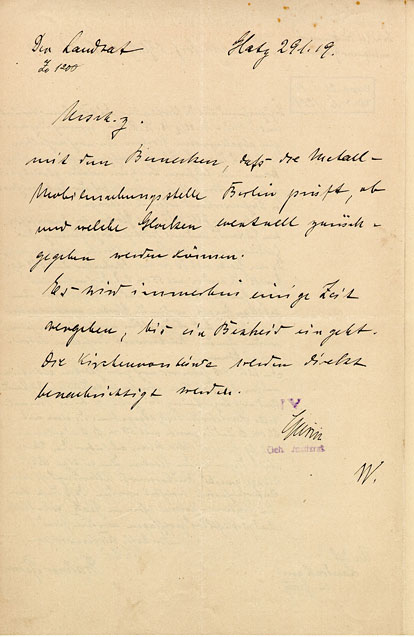 Der Landrat Glatz 29.1.19.
Urschr. z.
mit dem Bemerken, daß die Metall-
Mobilmachungsstelle Berlin prüft, ob
und welche Glocken eventuell zurück-
gegeben werden können.
Es wird immerhin einige Zeit
vergehen, bis ein Bescheid eingeht.
Die Kirchenvorstände werden direkt
benachrichtigt werden.
W.